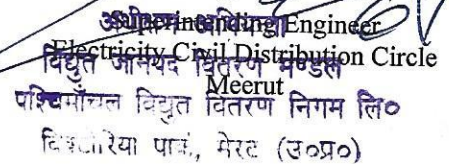 Superintending Engineer
अधीक्षण अभियन्ता
Electricity Civil Distribution Circle
विद्युत जानपद वितरण मण्डल
Meerut
पश्चिमाँचल विद्युत वितरण निगम लि०
विक्टोरिया पार्क, मेरठ (उ०प्र०)